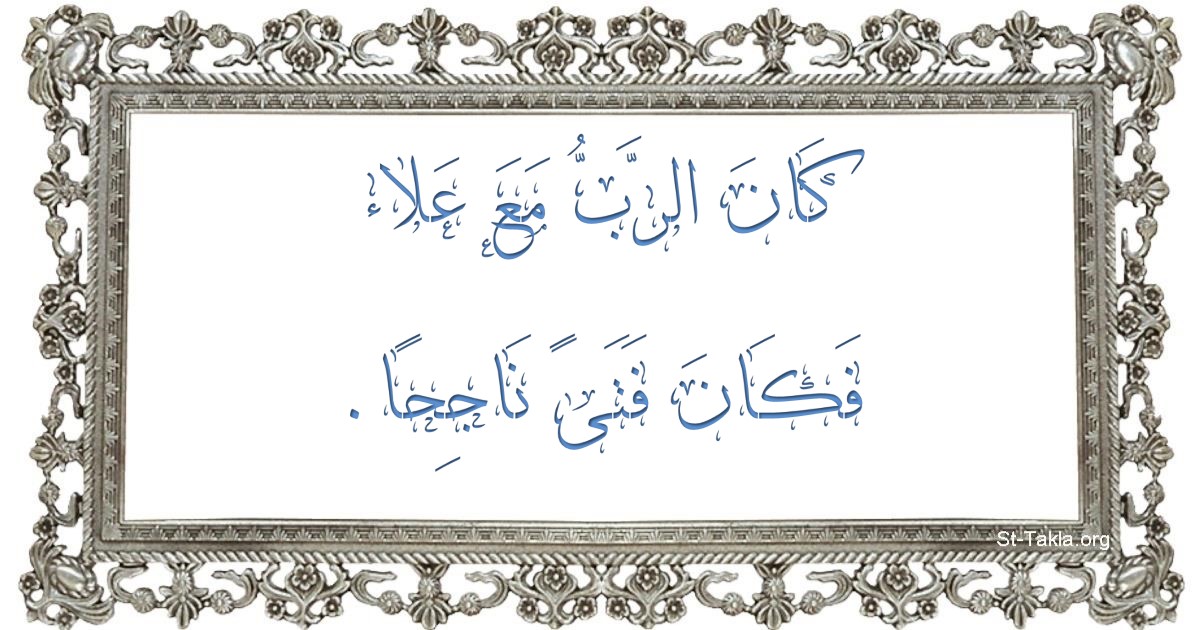 كَانَ الرَّبُّ مَعَ عَلاء
فَكَانَ فَتَىً نَاجِحًا .
St-Takla.org